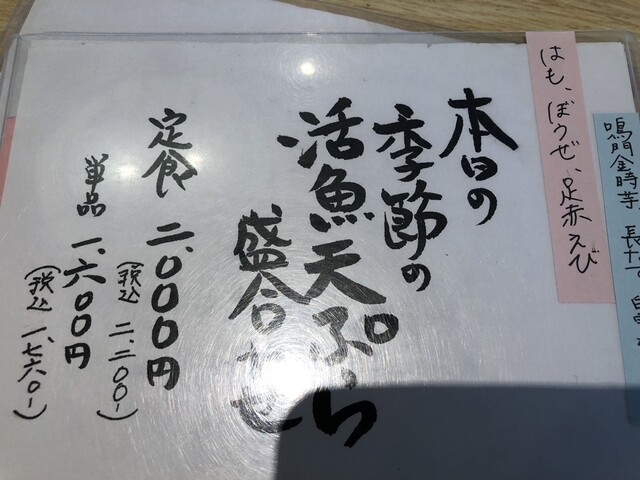 鳴門金時芋
はも、ぼうぜ、足赤えび
本日の
季節の
活魚天ぷら
盛合わせ
定食 二、000円
(税込 二、二00-)
単品 一、六00円
(税込 一、七六0-)